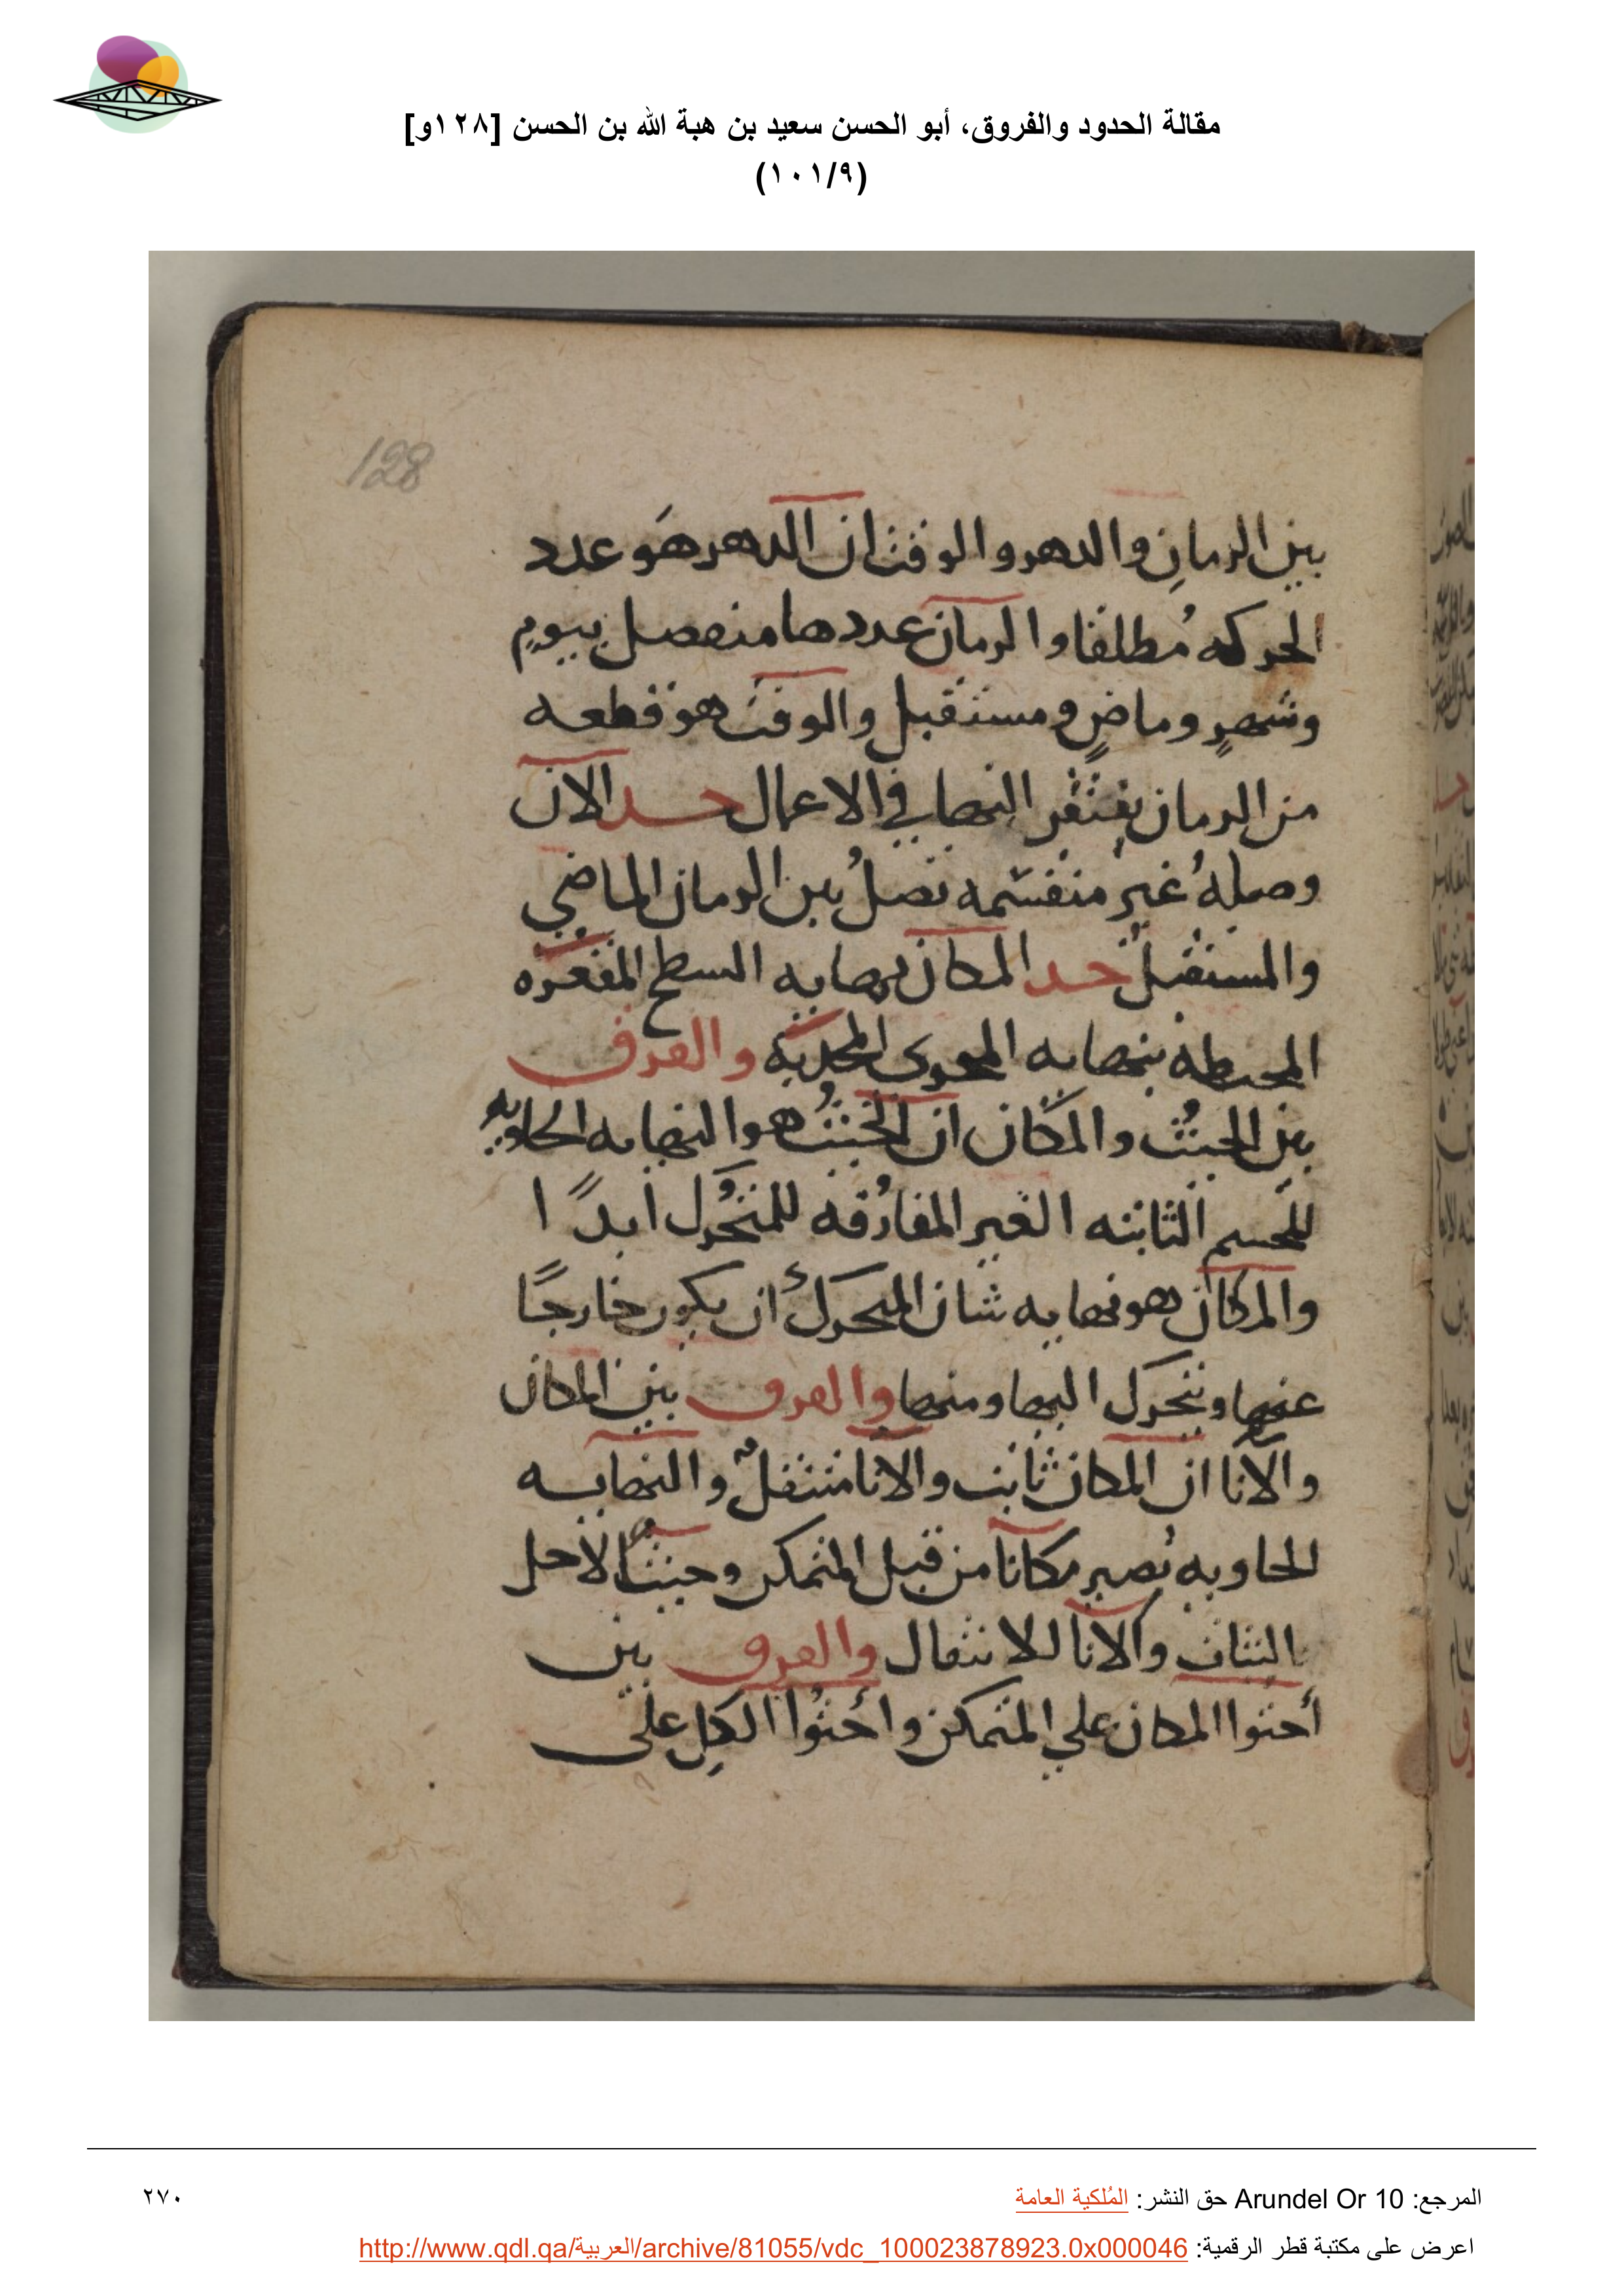 مقالة الحدود والفروق، أبو الحسن سعيد بن هبة الله بن الحسن [١٢٨و]
(١٠١/٩)
128
بين الزمان والدهر والوقت ان الدهر هو عدد
الحركه مُطلقا والزمان عددها منفصل بيومٍ
وشهرٍ وماضٍ ومستقبل والوقت هو قطعه
من الزمان يفتقر اليها في الاعمال حد الان
وصلهُ غير منقسمه تصلُ بين الزمان الماضي
والمستقبل حد المكان نهايه السطح المقعره
المحيطه بنهايه المحوى المحدبه والفرق
بين الحيث والمكان ان الحيث هو النهايه الحاويه
للجسم الثابته الغير المفارقه للمتحرك ابدًا
والمكان هو نهايه شان المتحرك ان يكون خارجًا
عنها ويتحرك اليها ومنها والفرق بين المكان
والانا ان المكان ثابت والانا منتقل والنهايه
الحاويه تصير مكانا من قبل المتمكن وحيثًا لاجل
الثبات والانا للانتقال والفرق بين
أحتوا المكان علي المتمكن واحتوا الكل على
المرجع: Arundel Or 10 حق النشر: المُلكية العامة
٢٧٠
اعرض على مكتبة قطر الرقمية: http://www.qdl.qa/العربية/archive/81055/vdc_100023878923.0x000046